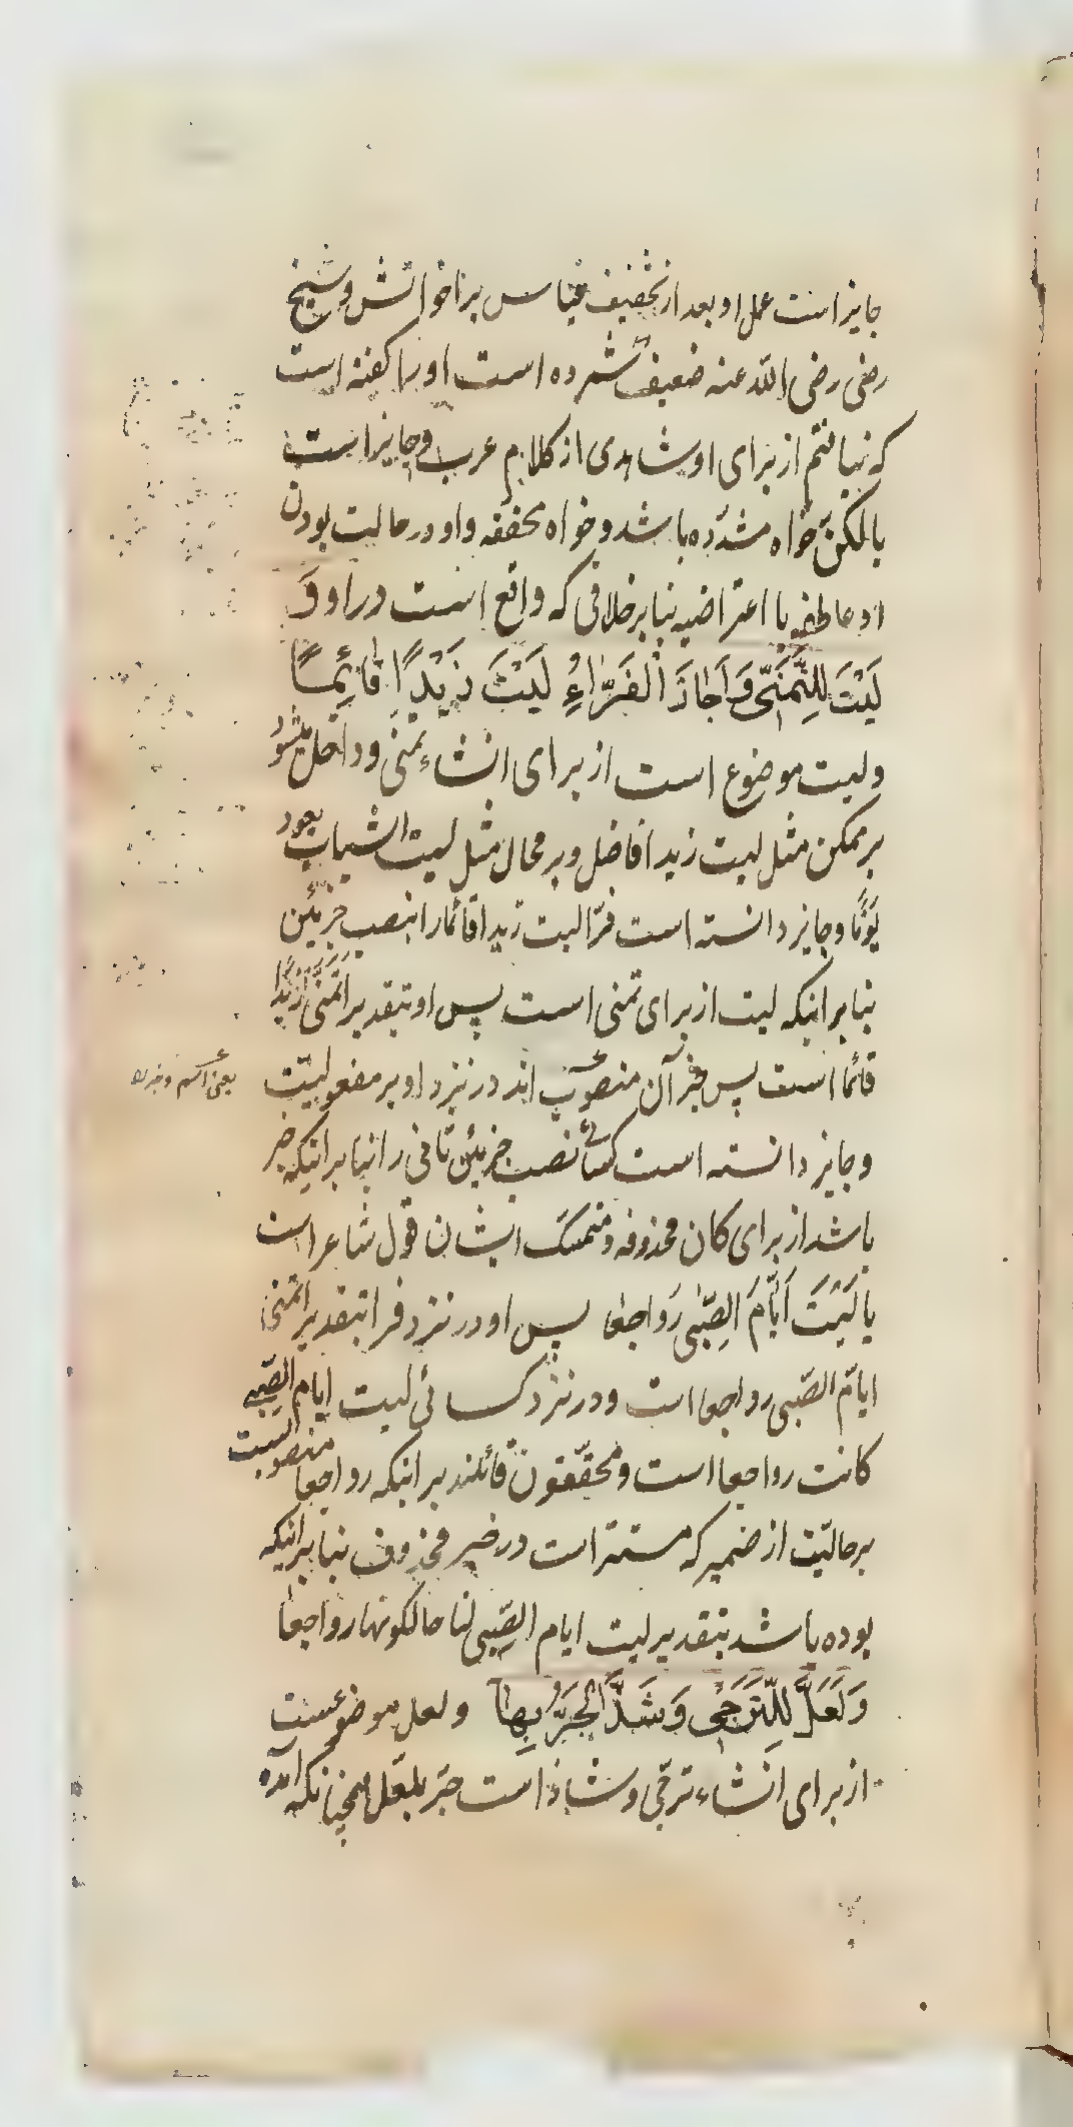 جایز است عمل او بعد از تخفیف قیاس بر اخواتش و شیخ
رضی رضی الله عنه ضعیف شمرده است او را گفته است
که نیافتم از برای او شاهدی از کلام عرب و جایز است
با لکنّ خواه مشدّده باشد و خواه مخففه واو در حالت بودن
او عاطفه یا اعتراضیه بنابر خلافی که واقع است در او وَ
لَیْتَ لِلتَّمَنّی وَ اَجازَ الْفَرّاءُ لَیْتَ زَیْدًا قائِمًا
و لیت موضوع است از برای انشاء تمنی و داخل میشود
بر ممکن مثل لیت زیدا فاضل و بر محال مثل لیت الشباب یعود
یَومًا و جایز دانسته است فرّا لیت زیدا قائما را بنصب جزئین
بنابر اینکه لیت از برای تمنی است پس او بتقدیر اَتَمَنّی زَیْدًا
قائما است پس جزآن منصوب اند در نزد او بر مفعولیّت
یعنی اسم و خبر
و جایز دانسته است کسائی نصب جزیئن ثانی را بنابر اینکه خبر
باشد از برای کان محذوفه و متمسک ایشان قول شاعر است
یا لَیْتَ اَیّامَ الصِّبی رَواجعا پس او در نزد فرا بتقدیر اتمنی
ایّام الصّبی رواجعا است و در نزد کسائی لیت ایام الصّبی
کانت رواجعا است و محقّقون قائلند بر اینکه رواجعا منصوبست
بر حالیّت از ضمیر که مستتر است در خبر محذوف بنابر اینکه
بوده باشد بتقدیر لیت ایام الصِّبی لنا حالکونها رواجعا
وَ لَعَلَّ لِلتَّرَجّی وَ شَذَّ الْجَرُّ بِها و لعل موضوعست
از برای انشاء ترجّی و شاذ است جرّ بلعّل همچنانکه آمده